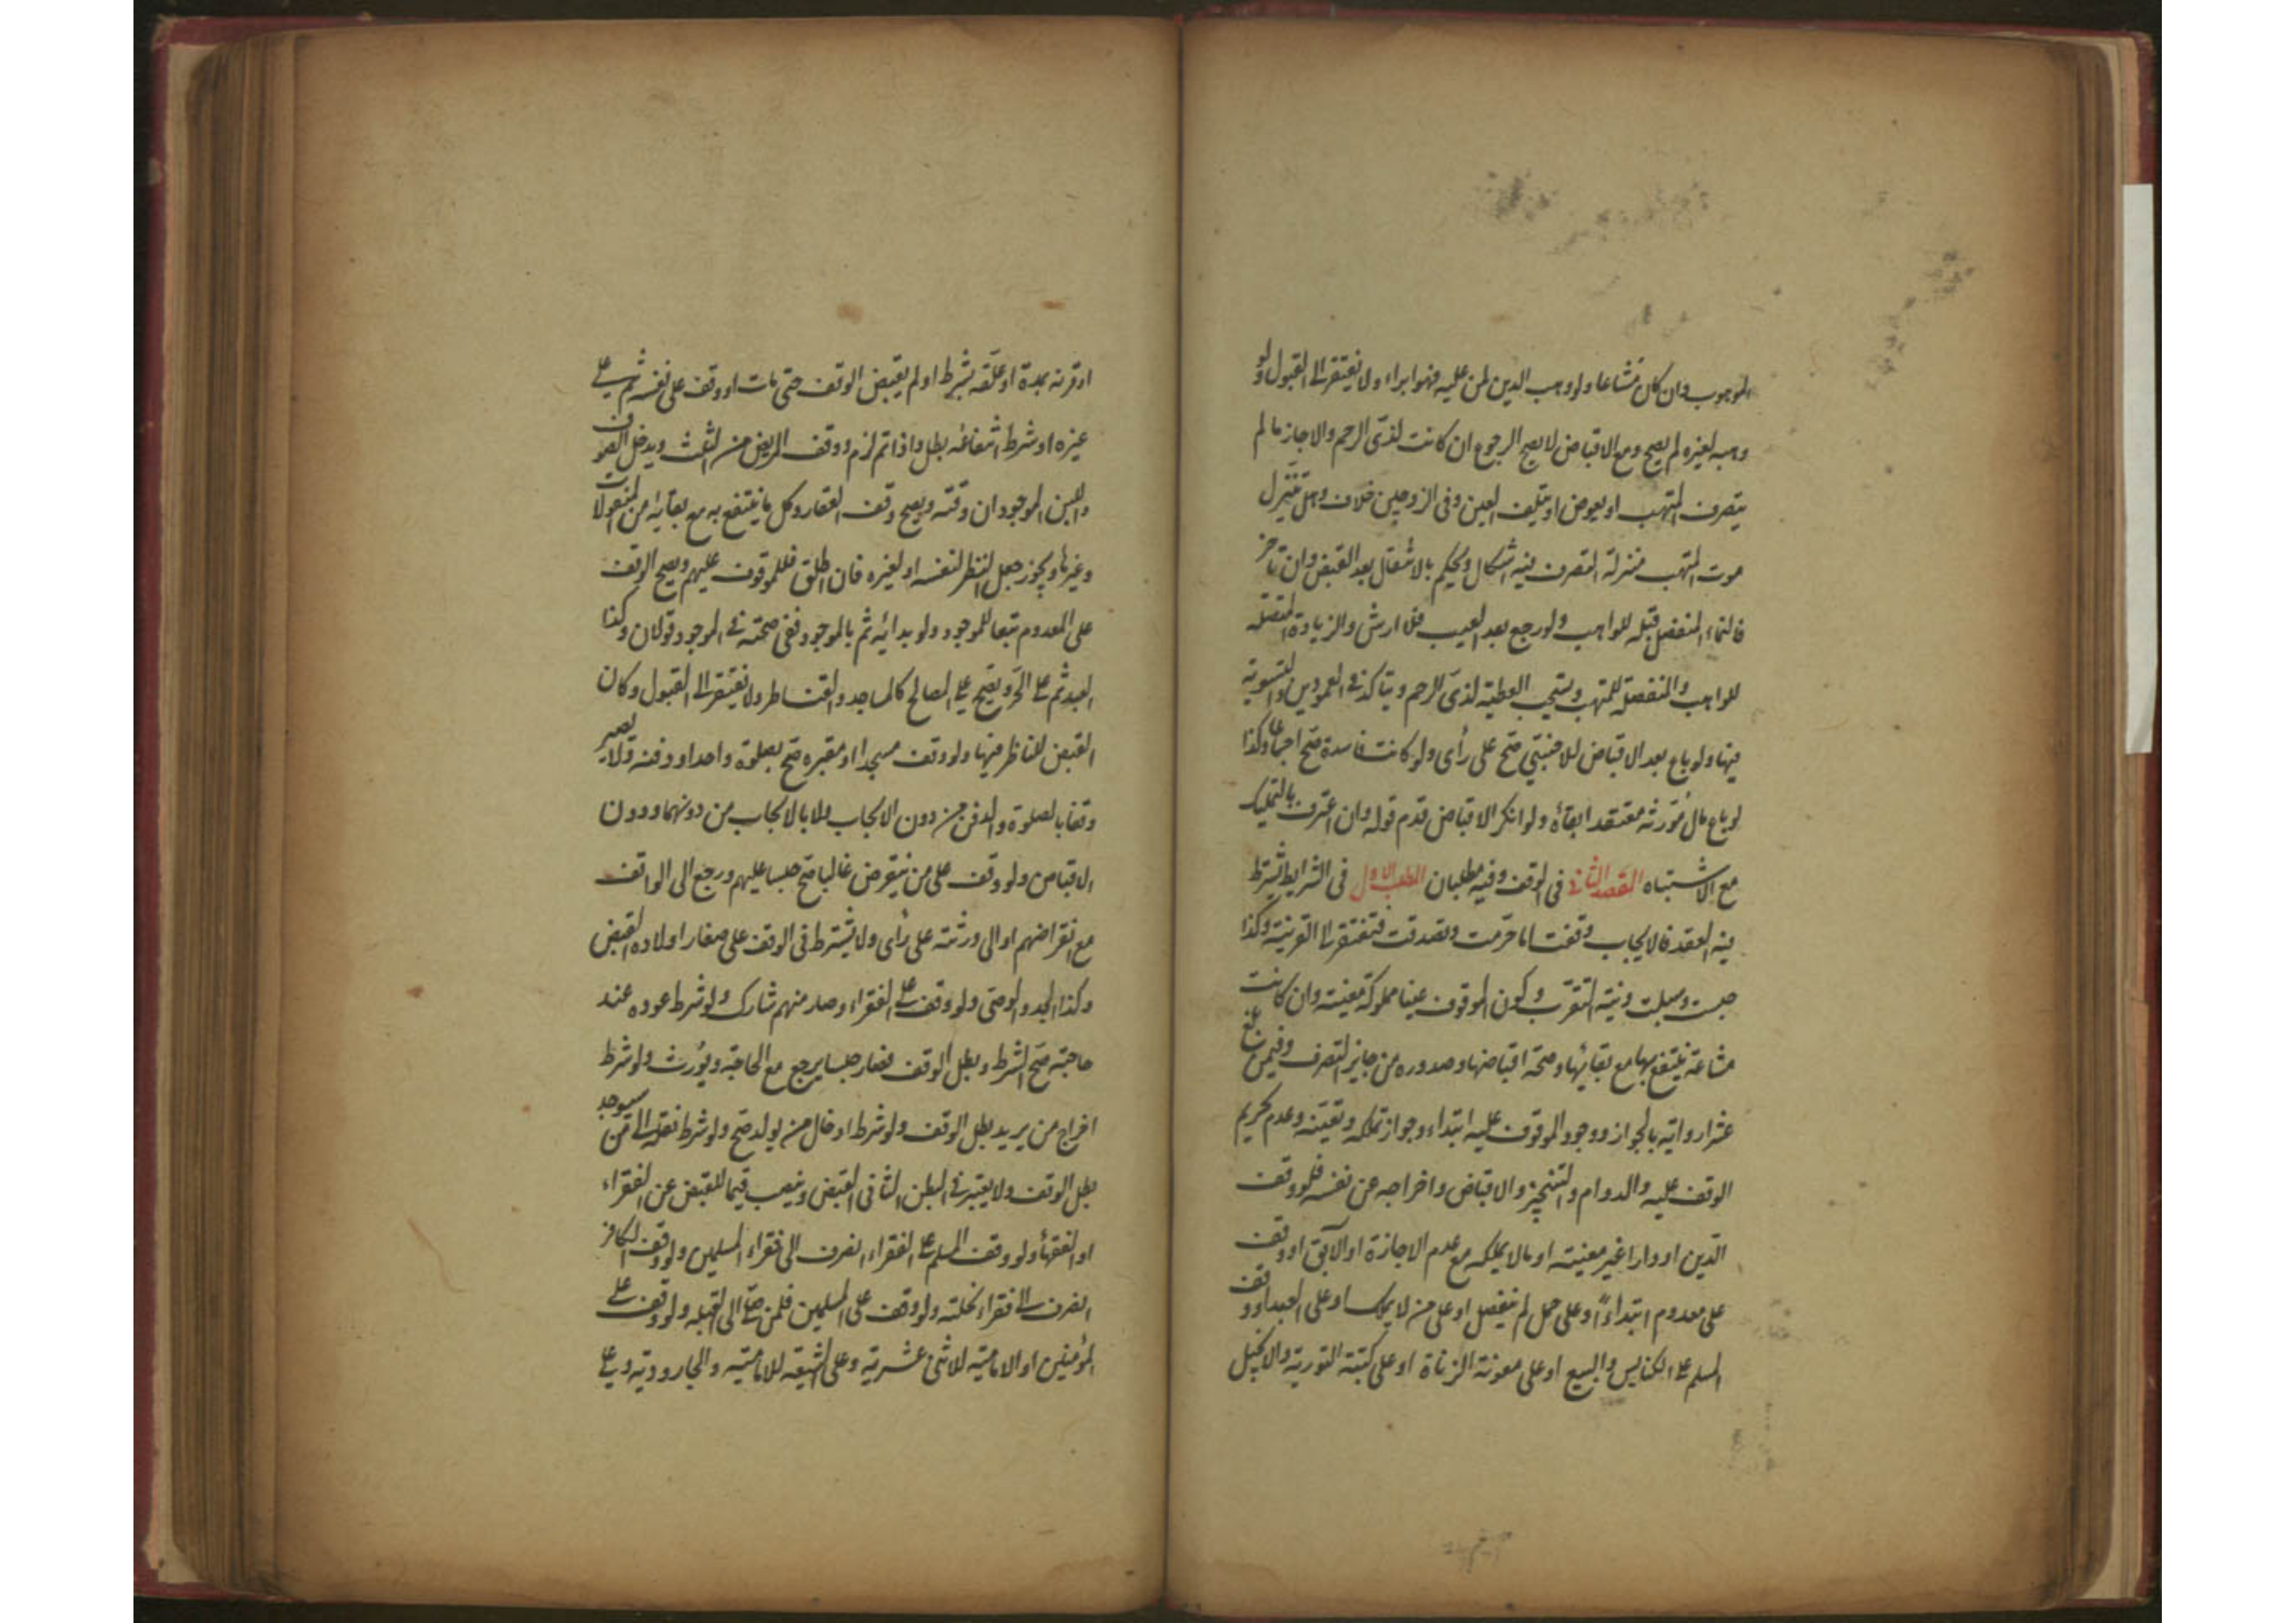 الموهوب وان كان مشاعا ولو وهب الدين لمن عليه فهو ابراء ولا يفتقر الى القبول ولو
وهبه لغيره لم يصح ومع الاقباض لا يصح الرجوع ان كانت لذى الرحم والا جاز ما لم
يتصرف المتهب او يعوض او يتلف العين وفى الزوجين خلاف وهل تتنزل
موت المتهب منزلة التصرف فيه اشكال ويحكم بالانتقال بعد القبض وان تاخر
فالنماء المنفصل قبله للواهب ولو رجع بعد العيب فلا ارش والزيادة المتصلة
للواهب والمنفصلة للمتهب ويستحب العطية لذى الرحم ويتاكد فى العمودين والتسوية
فيها ولو باع بعد الاقباض للاجنبى صح على رأى ولو كانت فاسدة صح اجماعا وكذا
لو باع مال مورثه معتقد ابقاءه ولو انكر الاقباض قدم قوله وان اعترف بالتمليك
مع الاشتباه المقصد الثانى فى الوقف وفيه مطلبان المطلب الاول فى الشرايط يشترط
فيه العقد فالايجاب وقفت اما حرمت وتصدقت فتفتقر الى القرينة وكذا
حبست وسبلت ونية التقرب وكون الموقوف عينا مملوكة معينة وان كانت
مشاعة ينتفع بها مع بقائها وصحة اقباضها وصدوره من جايز التصرف وفيمن بلغ
عشرا رواية بالجواز ووجود الموقوف عليه ابتداء وجواز تملكه وتعينه وعدم تحريم
الوقف عليه والدوام والتنجيز والاقباض واخراجه عن نفسه فلو وقف
الدين او دارا غير معينة او ما لا يملكه مع عدم الاجازة او الآبق او وقف
على معدوم ابتداءً او على حمل لم ينفصل او على من لا يملك او على العبد او وقف
المسلم على الكنايس والبيع او على معونة الزناة او على كتبة التورية والانجيل
او قرنه بمدة او علقه بشرط او لم يقبض الوقف حتى مات او وقف على نفسه ثم على
غيره او شرط انتفاعه بطل واذا تم لزم ووقف المريض من الثلث ويدخل الصوف
واللبن الموجودان وقته ويصح وقف العقار وكل ما ينتفع به مع بقائه من المنقولات
وغيرها ويجوز جعل النظر لنفسه او لغيره فان اطلق فللموقوف عليهم ويصح الوقف
على المعدوم تبعا للموجود ولو بدائه ثم بالموجود ففى صحته فى الموجود قولان وكذا
العبد ثم على الحر ويصح على المصالح كالمساجد والقناطر ولا يفتقر الى القبول وكان
القبض للناظر فيها ولو وقف مسجدا او مقبرة صح بصلوة واحد او دفنه ولا يصير
وقفا بالصلوة والدفن من دون الايجاب ولا بالايجاب من دونهما ودون
الاقباض ولو وقف على من ينقرض غالبا صح حبسا عليهم ورجع الى الواقف
مع انقراضهم او الى ورثته على رأى ولا يشترط فى الوقف على صغار اولاده القبض
وكذا الجد والوصى ولو وقف على الفقراء وصار منهم شارك ولو شرط عوده عند
حاجته صح الشرط وبطل الوقف فصار حبسا يرجع مع الحاجة ويورث ولو شرط
اخراج من يريد بطل الوقف ولو شرط ادخال من يولد صح ولو شرط نقله الى من سيوجد
بطل الوقف ولا يعتبر فى البطن الثانى القبض وينصب قيما للقبض عن الفقراء
او الفقهاء ولو وقف المسلم على الفقراء انصرف الى فقراء المسلمين ولو وقف الكافر
انصرف الى فقراء نحلته ولو وقف على المسلمين فلمن صلى الى القبلة ولو وقف على
المؤمنين او الامامية للاثنى عشرية وعلى الشيعة للامامية والجارودية وعلى